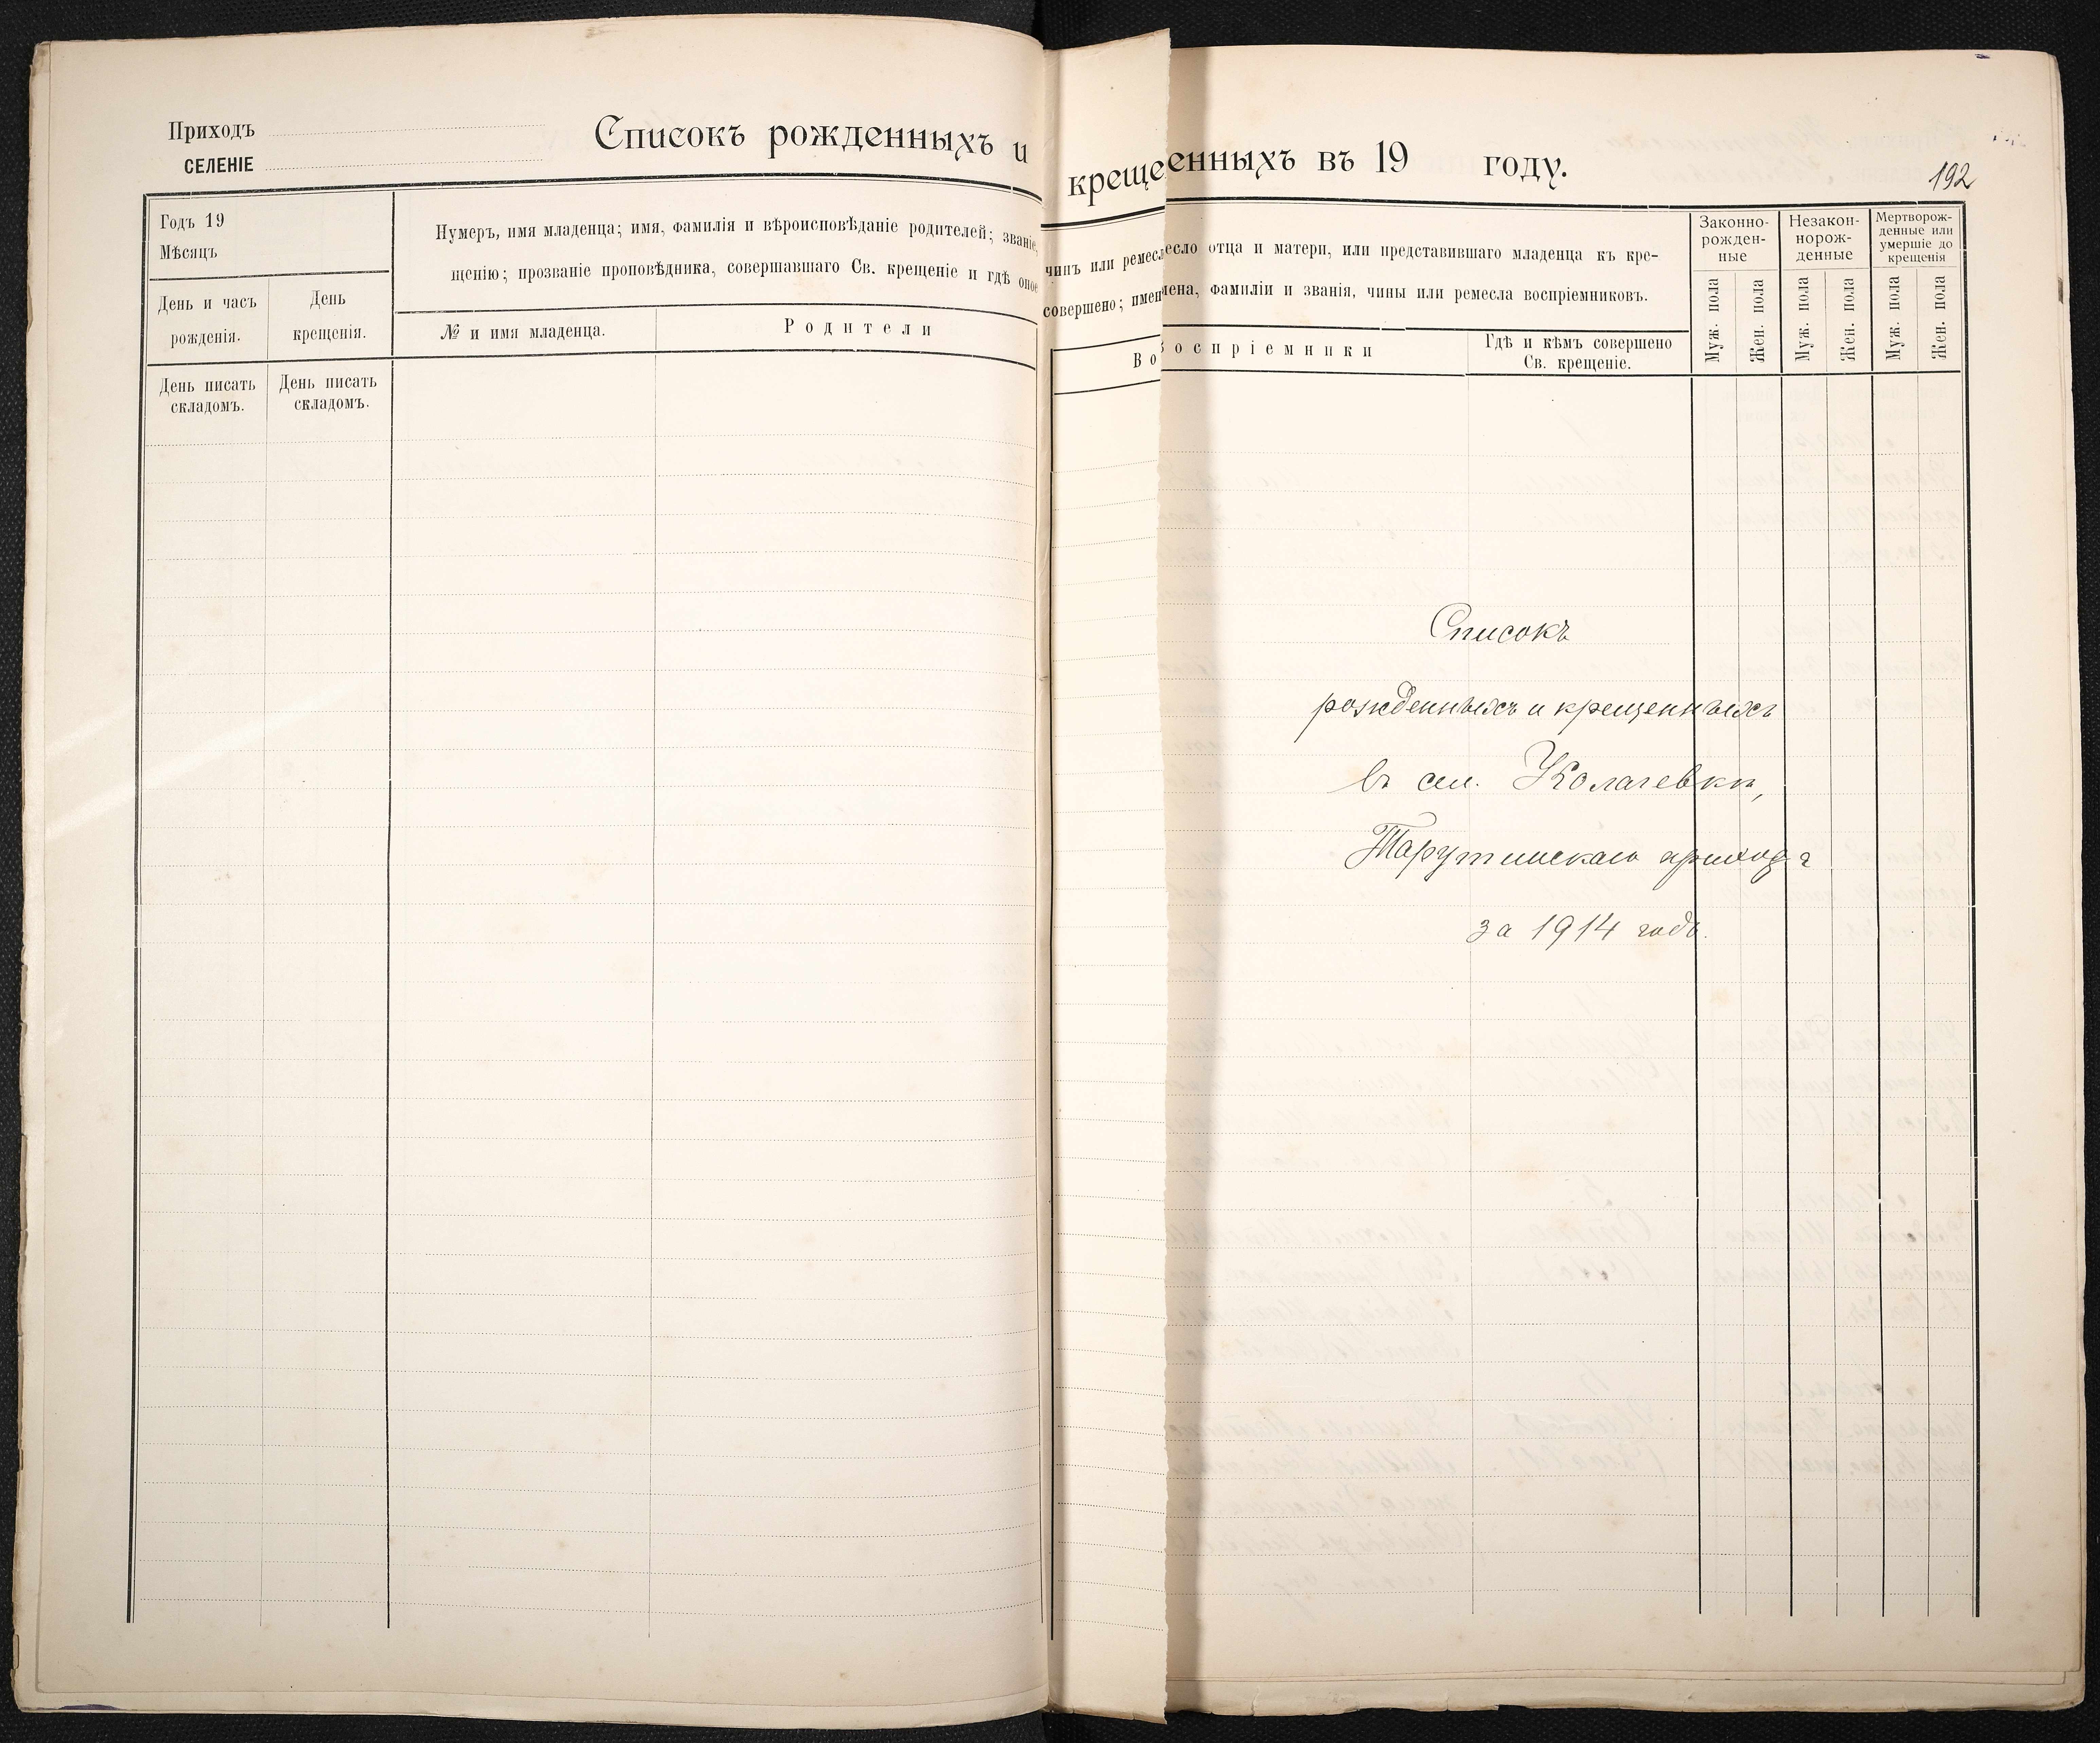 Приходъ
СЕЛЕНІЕ
Списокъ рожденныхъ и крещенныхъ въ 19 году.
192
Годъ 19
Мѣсяцъ
День и часъ рожденія.
День крещенія.
Нумеръ, имя младенца; имя, фамилія и вѣроисповѣданіе родителей; званіе, чинъ или ремесло отца и матери, или представившаго младенца къ кре-
щенію; прозваніе проповѣдника, совершавшаго Св. крещеніе и гдѣ оное совершено; имена, фамиліи и званія, чины или ремесла воспріемниковъ.
№ и имя младенца.
Родители
Воспріемники
Гдѣ и кѣмъ совершено
Св. крещеніе.
Законно-
рожден-
ные
Незакон-
норож-
денные
Мертворож-
денные или
умершіе до
крещенія
Муж. пола
Жен. пола
Муж. пола
Жен. пола
Муж. пола
Жен. пола
День писать
складомъ.
День писать
складомъ.
Списокъ
рожденныхъ и крещенныхъ
въ сел. Колачевкѣ,
Тарутинскаго прихода
за 1914 годъ.